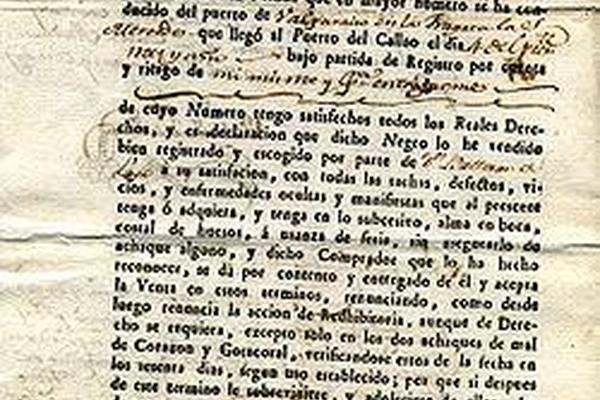 mayor numero se ha con-
ducido del puerto de Valparaiso en la
que llegó al Puerto del Callao el dia
bajo partida de Registro por cuenta
y riesgo de mi mismo y
de cuyo Numero tengo satisfechos todos los Reales Dere-
chos, y es declaracion que dicho Negro lo he vendido
bien registrado y escogido por parte de
á su satisfacion, con todas las tachas, defectos, vi-
cios, y enfermedades ocultas y manifiestas que al presente
tenga ó adquiera, y tenga en lo subcesivo, alma en boca,
costal de huesos, á usanza de feria, sin asegurarlo de
achaque alguno, y dicho Comprador que lo ha hecho
reconocer, se dá por contento y entregado de él y acepta
la Venta en estos terminos, renunciando, como desde
luego renuncia la accion de Redhibitoria, aunque de Dere-
cho se requiera, excepto solo en los dos achaques de mal
de Corazon y Gotacoral, verificandose estos de la fecha en
los sesenta dias, segun uso establecido; por que si despues
de este termino le subcediere, y adoleciere de